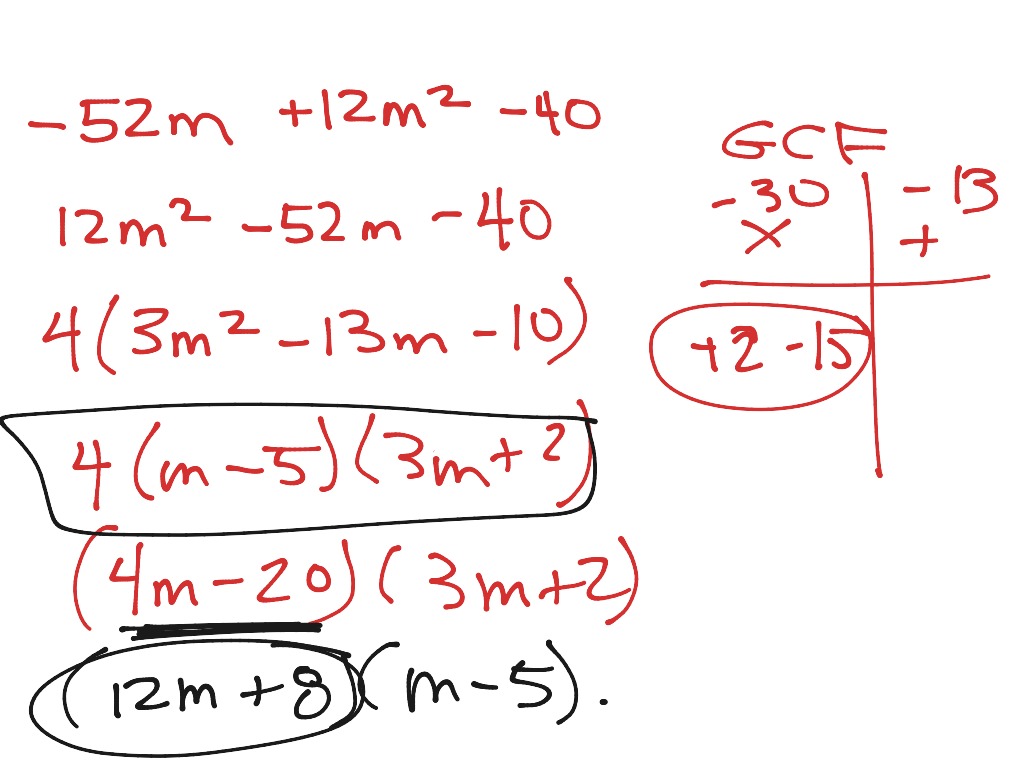 -52m +12m² -40
12m² -52m -40
4(3m² -13m -10)
4(m-5)(3m+2)
(4m-20)(3m+2)
(12m+8)(m-5).
GCF
-30 -13
× +
+2 -15